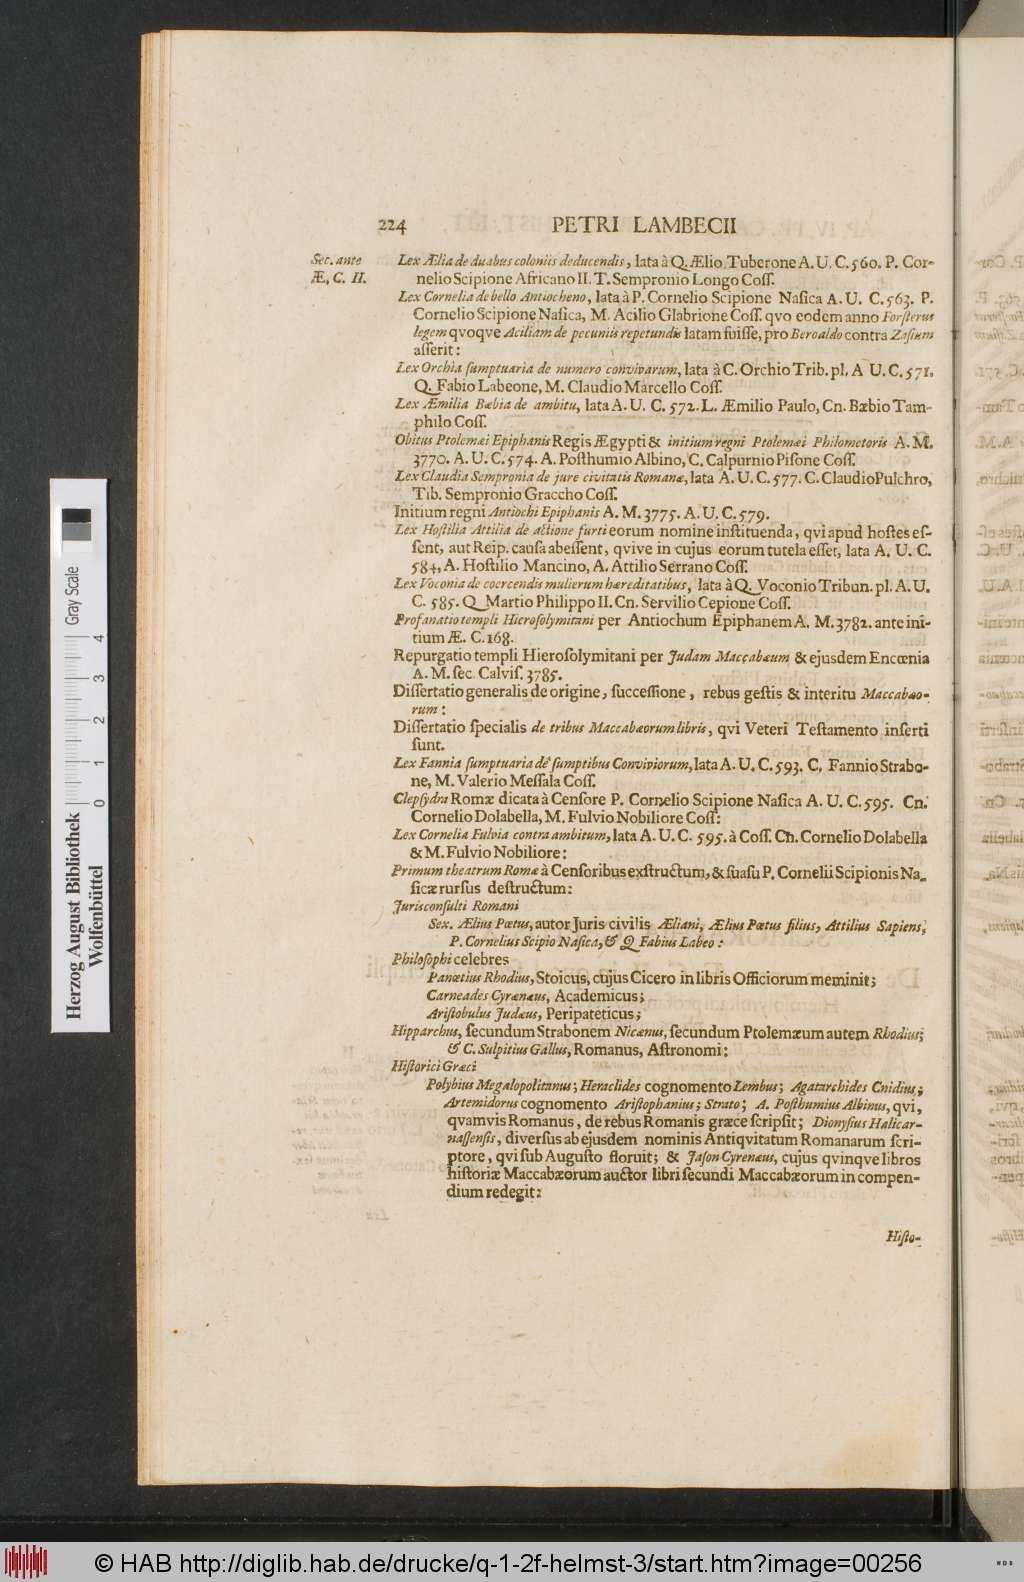 224 PETRI LAMBECII
Sec. ante
Æ, C. II.
Lex Ælia de duabus coloniis deducendis, lata à Q. Ælio Tuberone A. U. C. 560. P. Cor-
nelio Scipione Africano II. T. Sempronio Longo Coſſ.
Lex Cornelia de bello Antiocheno, lata à P. Cornelio Scipione Naſica A. U. C. 563. P.
Cornelio Scipione Naſica, M. Acilio Glabrione Coſſ. qvo eodem anno Forſterus
legem qvoqve Aciliam de pecuniis repetundis latam fuiſſe, pro Beroaldo contra Zaſium
aſſerit:
Lex Orchia ſumptuaria de numero convivarum, lata à C. Orchio Trib. pl. A U. C. 571.
Q. Fabio Labeone, M. Claudio Marcello Coſſ.
Lex Æmilia Bæbia de ambitu, lata A. U. C. 572. L. Æmilio Paulo, Cn. Bæbio Tam-
philo Coſſ.
Obitus Ptolemæi Epiphanis Regis Ægypti & initium regni Ptolemæi Philometoris A. M.
3770. A. U. C. 574. A. Poſthumio Albino, C. Calpurnio Piſone Coſſ.
Lex Claudia Sempronia de jure civitatis Romanæ, lata A. U. C. 577. C. Claudio Pulchro,
Tib. Sempronio Graccho Coſſ.
Initium regni Antiochi Epiphanis A. M. 3775. A. U. C. 579.
Lex Hoſtilia Attilia de actione furti eorum nomine inſtituenda, qvi apud hoſtes eſ-
ſent, aut Reip. cauſa abeſſent, qvive in cujus eorum tutela eſſet, lata A. U. C.
584, A. Hoſtilio Mancino, A. Attilio Serrano Coſſ.
Lex Voconia de coercendis mulierum hæreditatibus, lata à Q. Voconio Tribun. pl. A. U.
C. 585. Q. Martio Philippo II. Cn. Servilio Cepione Coſſ.
Profanatio templi Hieroſolymitani per Antiochum Epiphanem A. M. 3782. ante ini-
tium Æ. C. 168.
Repurgatio templi Hieroſolymitani per Judam Maccabæum & ejusdem Encœnia
A. M. ſec. Calviſ. 3785.
Diſſertatio generalis de origine, ſucceſſione, rebus geſtis & interitu Maccabæo-
rum:
Diſſertatio ſpecialis de tribus Maccabæorum libris, qvi Veteri Teſtamento inſerti
ſunt.
Lex Fannia ſumptuaria de ſumptibus Conviviorum, lata A. U. C. 593. C. Fannio Strabo-
ne, M. Valerio Meſſala Coſſ.
Clepſydra Romæ dicata à Cenſore P. Cornelio Scipione Naſica A. U. C. 595. Cn.
Cornelio Dolabella, M. Fulvio Nobiliore Coſſ:
Lex Cornelia Fulvia contra ambitum, lata A. U. C. 595. à Coſſ. Cn. Cornelio Dolabella
& M. Fulvio Nobiliore:
Primum theatrum Romæ à Cenſoribus exſtructum, & ſuaſu P. Cornelii Scipionis Na-
ſicæ rurſus deſtructum:
Jurisconſulti Romani
Sex. Ælius Pætus, autor Juris civilis Æliani, Ælius Pætus filius, Attilius Sapiens,
P. Cornelius Scipio Naſica, & Q Fabius Labeo:
Philoſophi celebres
Panætius Rhodius, Stoicus, cujus Cicero in libris Officiorum meminit;
Carneades Cyrænæus, Academicus;
Ariſtobulus Judæus, Peripateticus;
Hipparchus, ſecundum Strabonem Nicænus, ſecundum Ptolemæum autem Rhodius;
& C. Sulpitius Gallus, Romanus, Aſtronomi:
Hiſtorici Græci
Polybius Megalopolitanus; Heraclides cognomento Lembus; Agatarchides Cnidius;
Artemidorus cognomento Ariſtophanius; Strato; A. Poſthumius Albinus, qvi,
qvamvis Romanus, de rebus Romanis græce ſcripſit; Dionyſius Halicar-
naſſenſis, diverſus ab ejusdem nominis Antiqvitatum Romanarum ſcri-
ptore, qvi ſub Auguſto floruit; & Jaſon Cyrenæus, cujus qvinqve libros
hiſtoriæ Maccabæorum auctor libri ſecundi Maccabæorum in compen-
dium redegit:
Hiſto-
Herzog August Bibliothek
Wolfenbüttel
Gray Scale
0 1 2 3 4
© HAB http://diglib.hab.de/drucke/q-1-2f-helmst-3/start.htm?image=00256
WDB